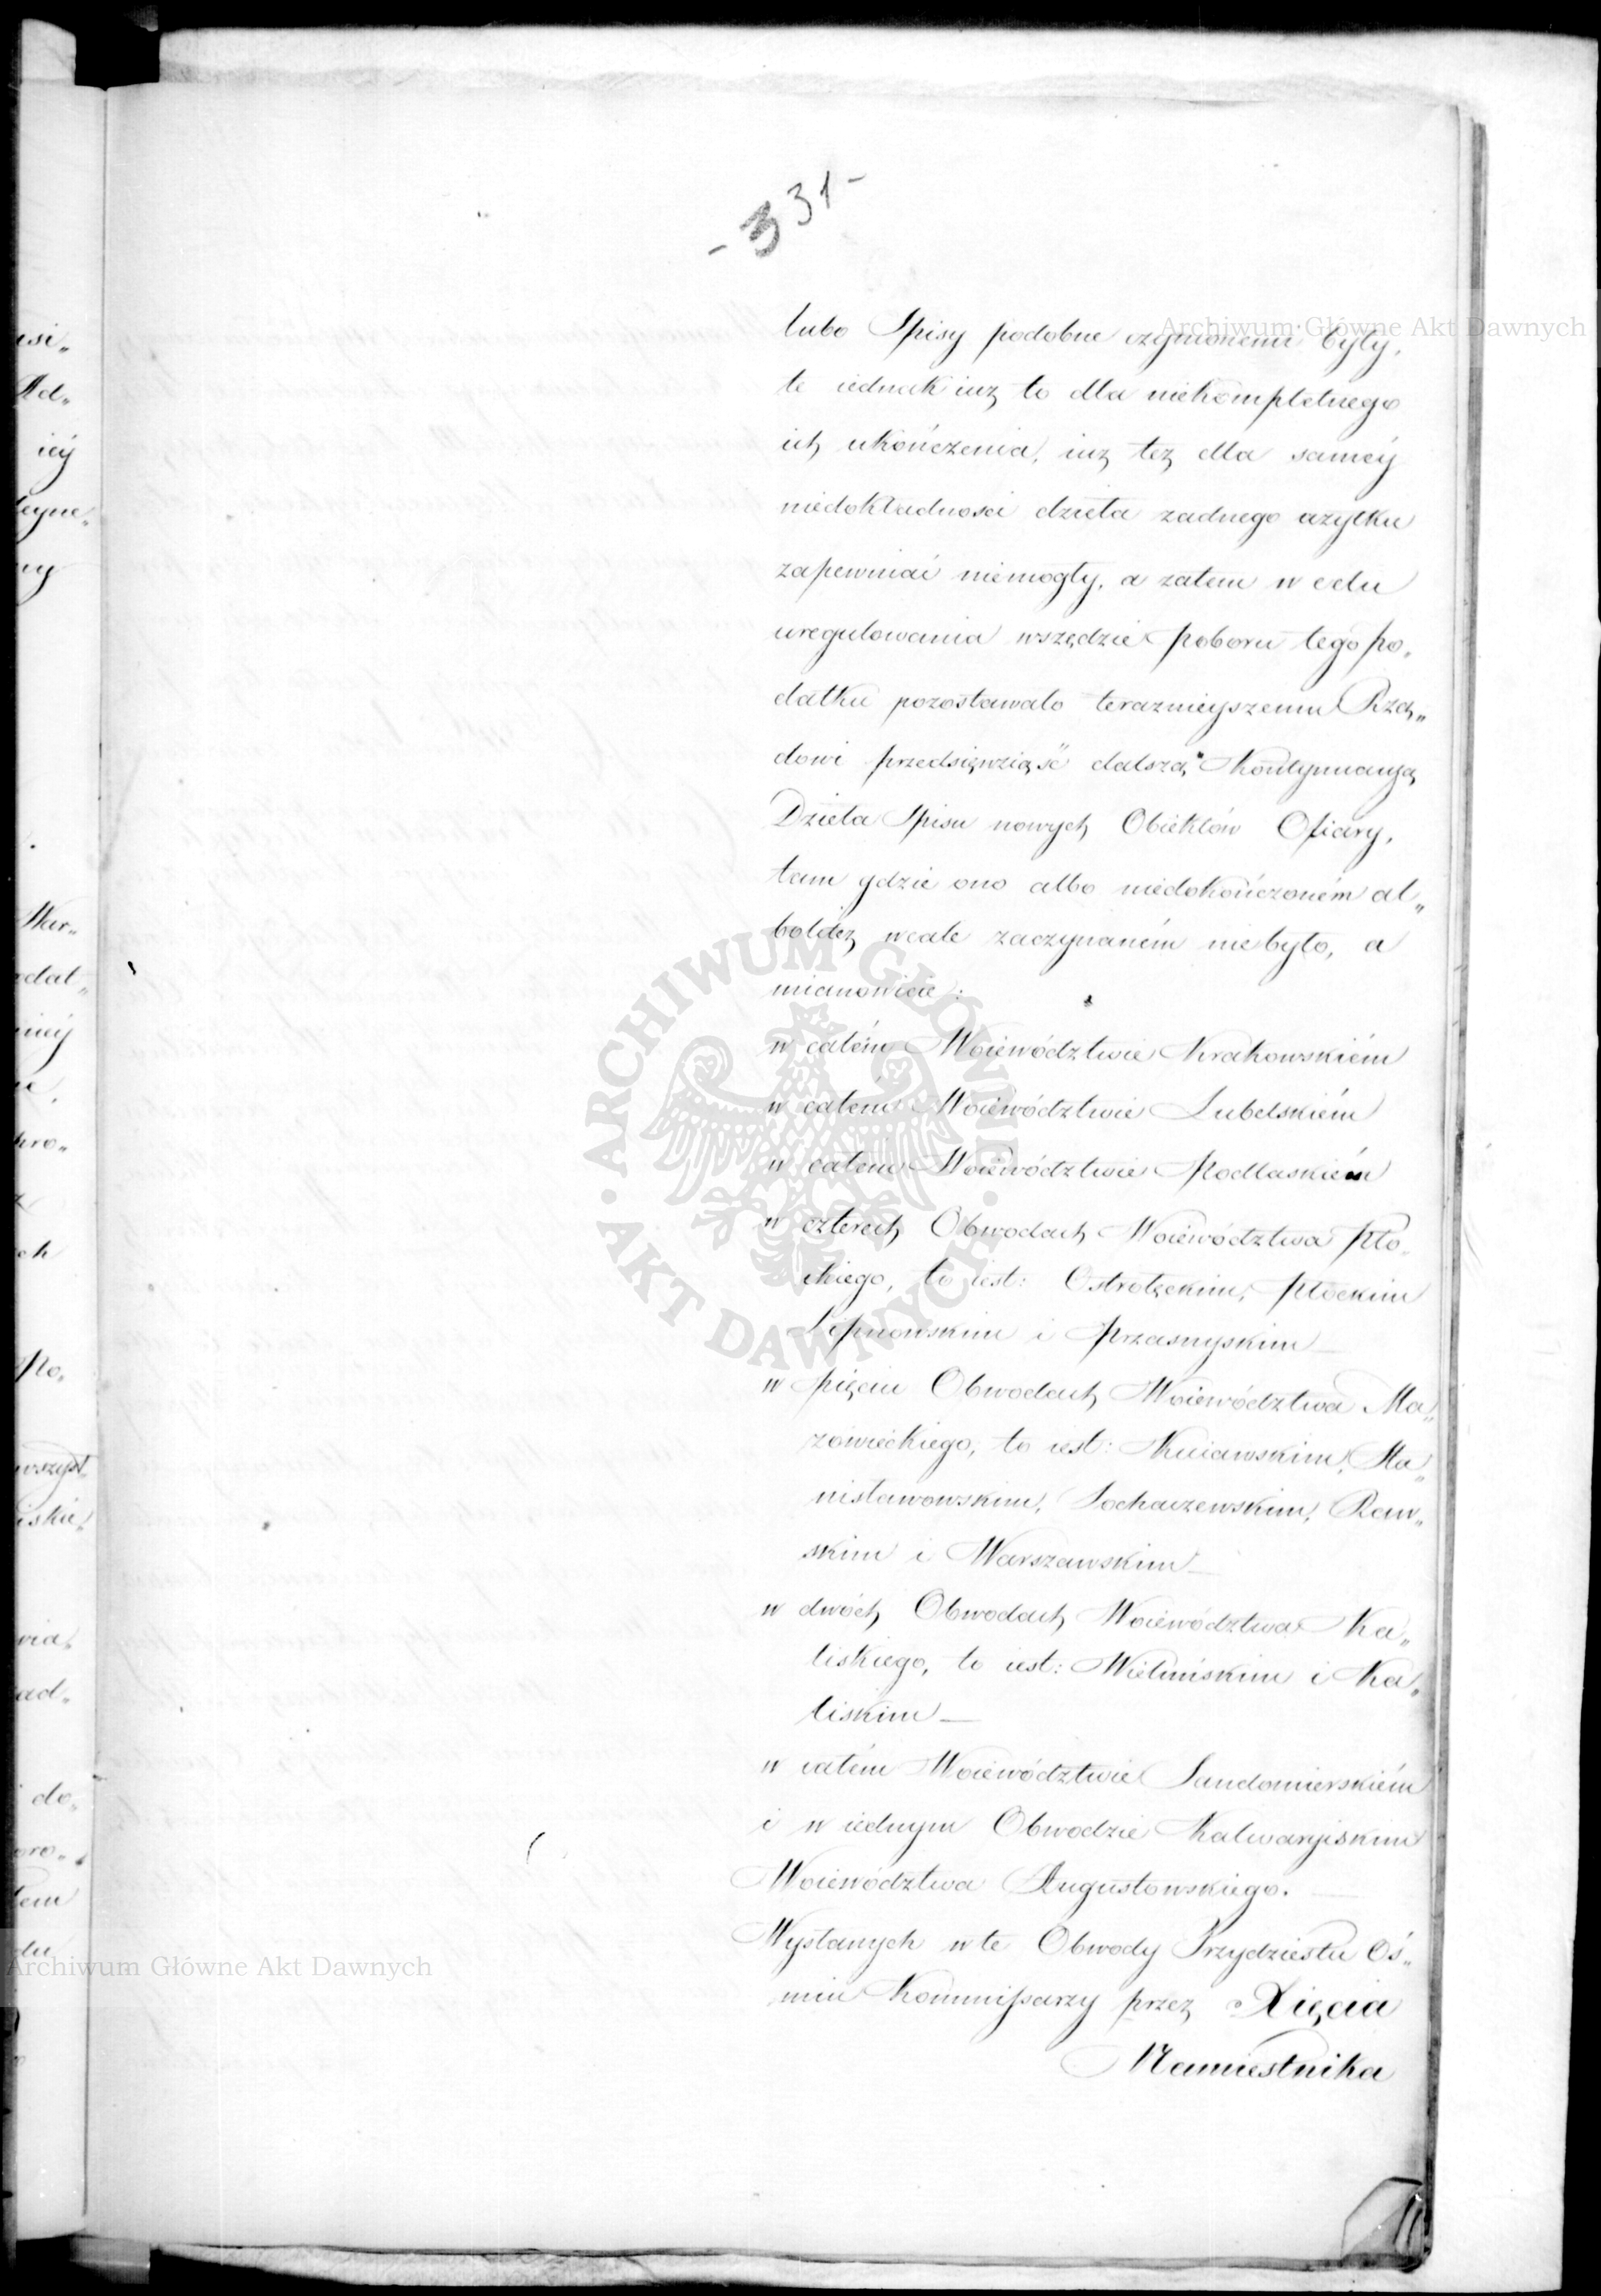 - 331 -
lubo Spisy podobne czynionemi były,
te iednak iuż to dla niekompletnego
ich ukończenia, iuż też dla saméy
niedokładnosci dzieła zadnego uzytku
zapewniać niemogły, a zatem w celu
uregulowania wszędzie poboru tego po„
datku pozostawało terazniejszemu Rzą„
dowi przedsięwziąść dalszą Kontynuacyą
Dzieła Spisu nowych Obiektów Ofiary,
tam gdzie ono albo niedokończoném al„
boliteż wcale zaczynaném nie było, a
mianowicie:
w całém Woiewództwie Krakowskiém
w całém Woiewództwie Lubelskiém
w całém Woiewództwie Podlaskiém
w czterech Obwodach Woiewództwa Pło„
ckiego, to iest: Ostrołęckim, Płockim
Lipnowskim i Przasnyskim —
w pięciu Obwodach Woiewództwa Ma„
zowieckiego, to iest: Kuiawskim, Sta„
nisławowskim, Sochaczewskim, Raw„
skim i Warszawskim —
w dwóch Obwodach Woiewództwa Ka„
liskiego, to iest: Wieluńskim i Ka„
liskim —
w całém Woiewództwie Sandomierskiém
i w iednym Obwodzie Kalwaryiskim
Woiewództwa Augustowskiego. —
Wysłanych w te Obwody Trzydziestu Oś„
miu Kommissarzy przez Xięcia
Namiestnika
Archiwum Główne Akt Dawnych
ARCHIWUM GŁÓWNE AKT DAWNYCH
Archiwum Główne Akt Dawnych